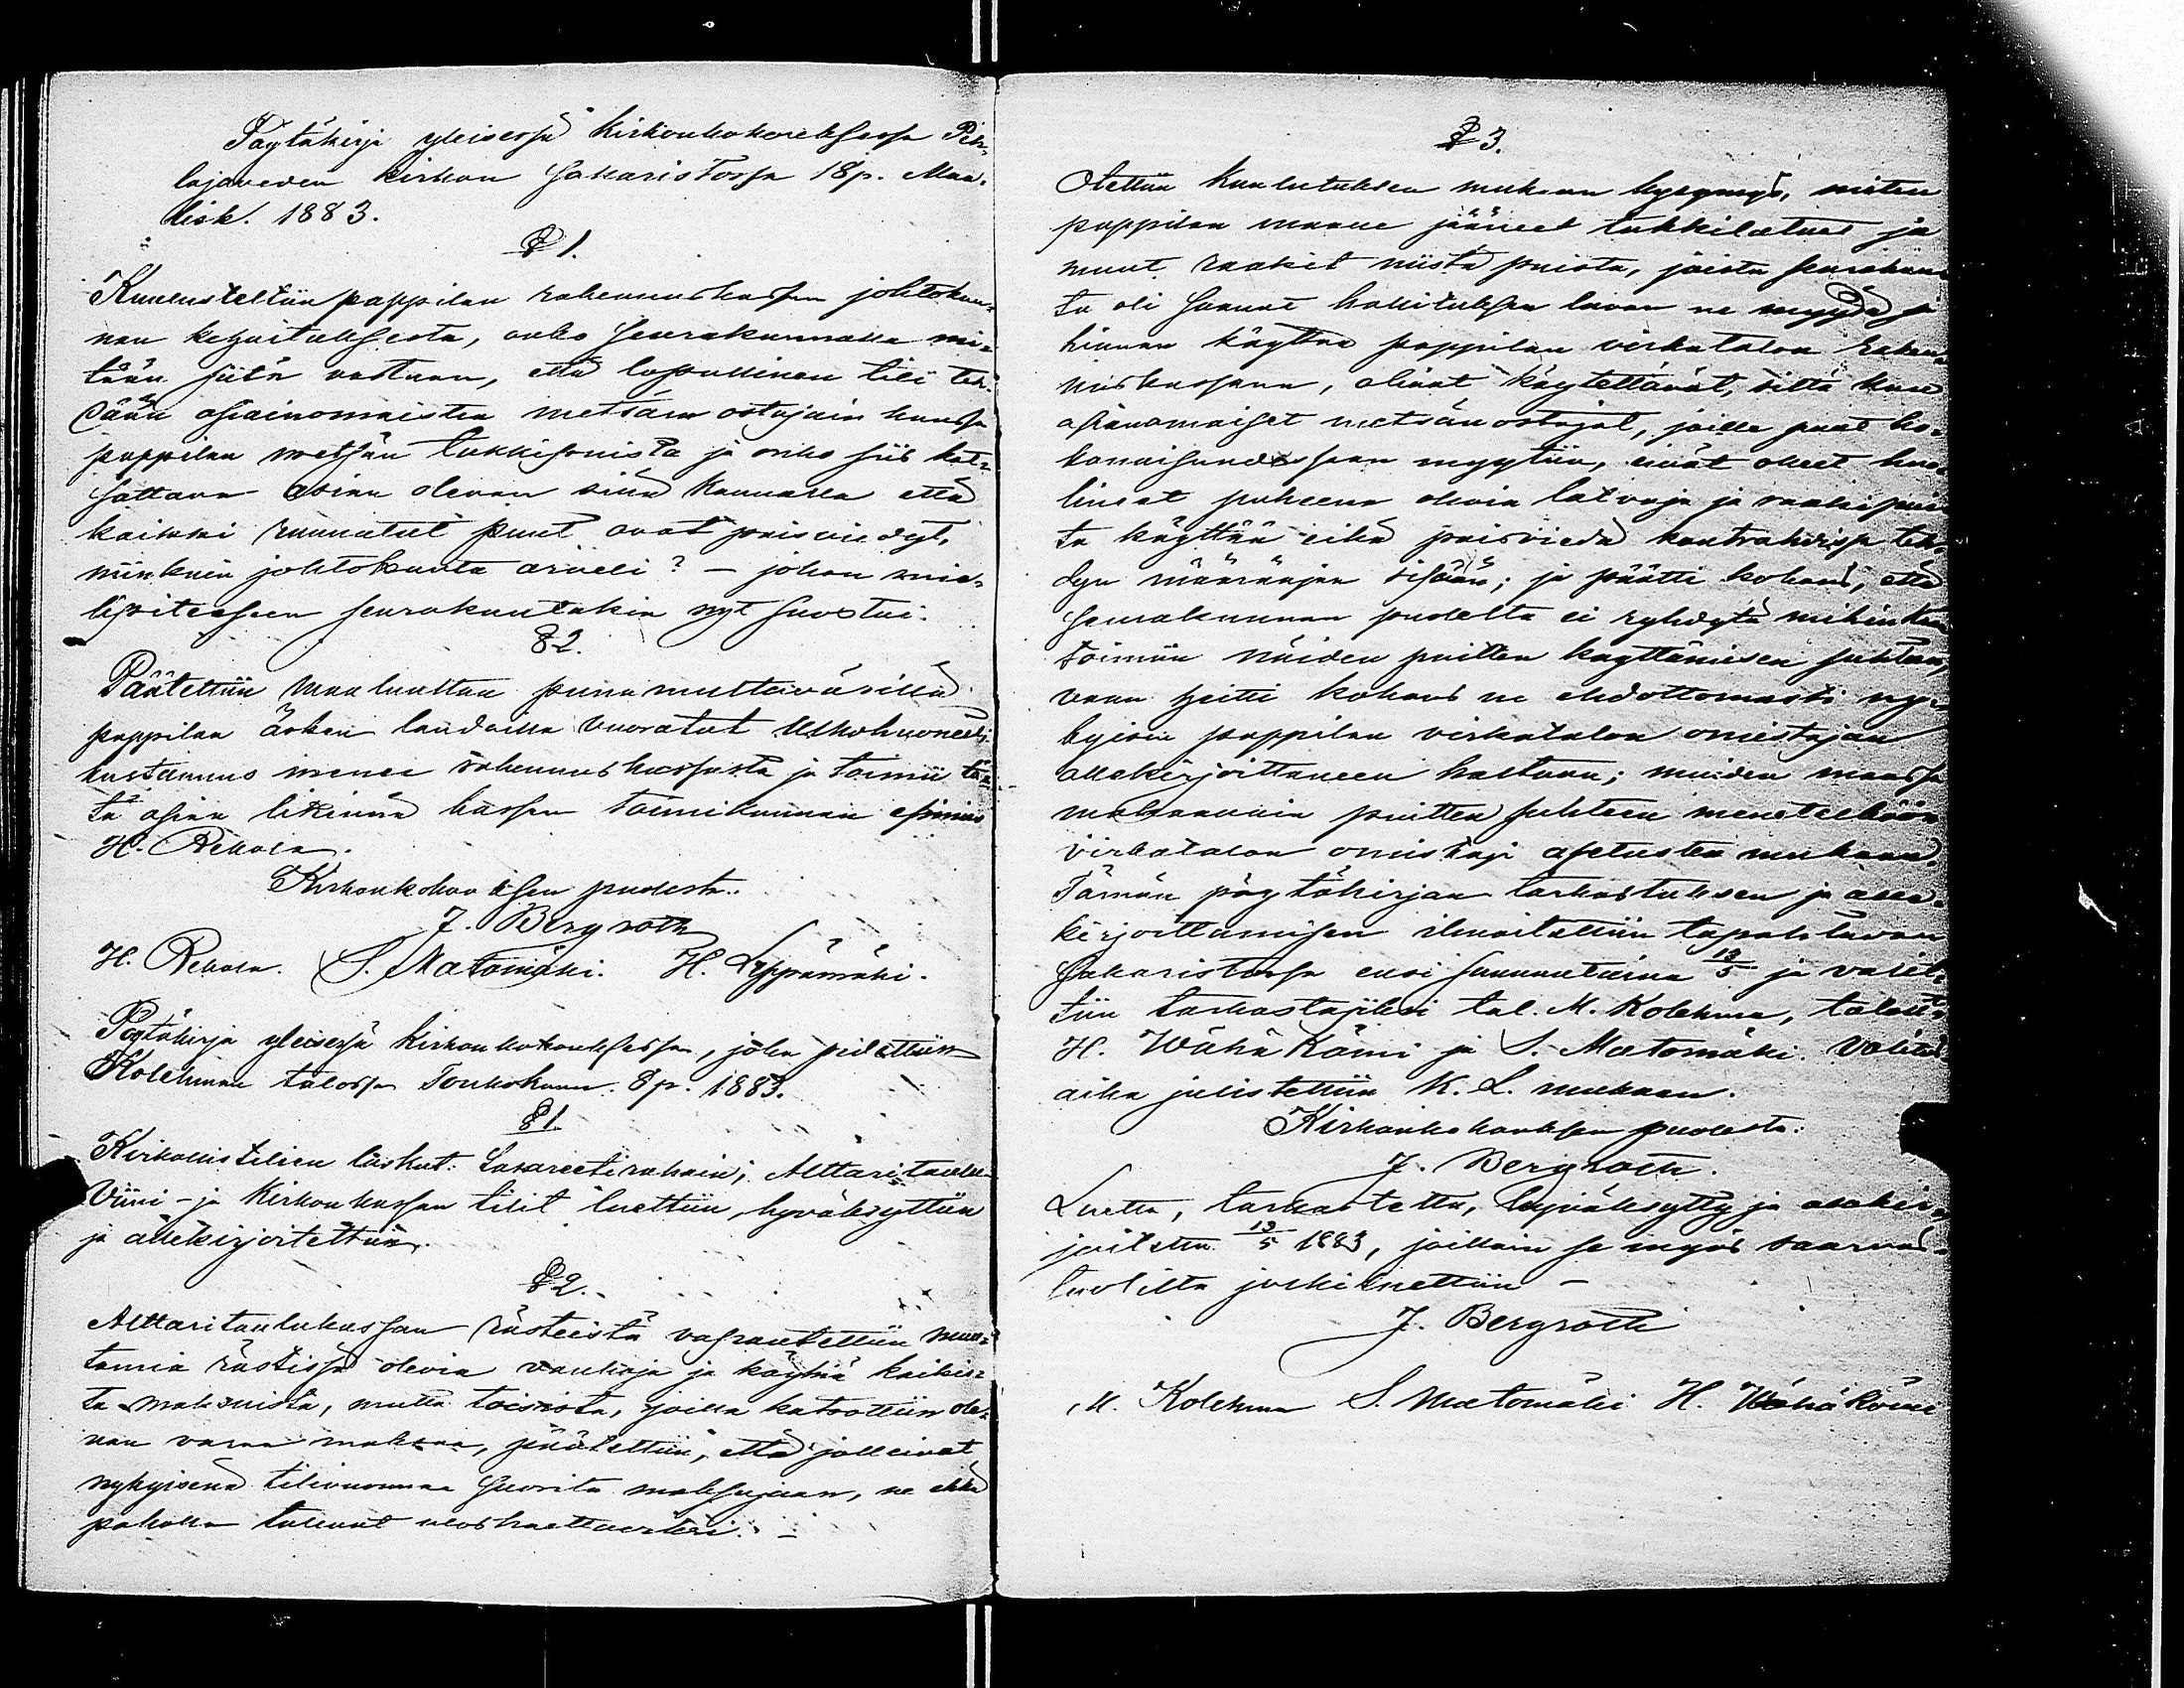 Pöytäkirja yleisessä kirkonkokouksessa Pih-
lajaveden kirkon sakaristossa 18p. Maa-
lisk. 1883.
§ 1.
Kuulusteltiin pappilan rakennuskassan johtokun-
nan kehoituksesta, onko seurakunnalla mi-
tään siitä vastaan, että lopullinen tili teh-
dään asianomaisten metsän ostajain kanssa
pappilan metsän tukkipuista ja onko siis kat-
sottava asian olevan sillä kannalla että
kaikki puut ovat poisviedyt,
niinkuin johtokunta arveli? – johon mie-
lipiteeseen seurakuntakin nyt suostui.
§ 2.
Päätettiin maaluuttaa punamultavärillä
pappilan äsken laudoilla vuoratut ulkohuoneet;
kustannus menee rakennuskassasta ja toimii tä-
tä asiaa likinnä kassan toimikunnan esimies
H. Rekola.
Kirkonkokouksen puolesta:
J. Bergroth
H. Rekola. S. Matomäki. H. Leppämäki.
Pöytäkirja yleisessä kirkonkokouksessa, joka pidettiin
Kolehman talossa Toukokuun 8p. 1883.
§ 1.
Kirkollistilien laskut: Lasareetirahain; Alttaritaulu-
Viini- ja Kirkonkassan tilit luettiin, hyväksyttiin
ja allekirjoitettiin.
§ 2.
Alttaritaulukassan rästeistä vapautettiin muu-
tamia rästissä olevia vanhoja ja köyhiä kaikis-
ta maksuista, mutta toisista, joilla katsottiin ole-
van varaa maksaa, päätettiin, että jolleivat
nykyisenä tilivuonna suorita maksujaan, ne ehkä
pakolla tulevat uloshaettaviksi. –
§ 3.
Otettiin kuulutuksen mukaan kysymys, miten
pappilan maalle jääneet tukkilatvat ja
muut raakit niistä puista, joista seurakun-
ta oli saanut hallituksen luvan ne myydä ja
hinnan käyttää pappilan virkatalon raken-
nuskassaan, olivat käytettävät, sillä kun
asianomaiset metsän ostajat, joille puut ko-
konaisuudessaan myytiin, eivät olleet huo-
lineet puheena olevia latvoja ja raakipui-
ta käyttää eikä poisviedä kontrahissa teh-
dyn määräajan sisään; ja päätti kokous, että
seurakunnan puolelta ei ryhdytä mihinkään
toimiin näiden puitten käyttämisen suhteen,
vaan heitti kokous ne ehdottomasti ny-
kyisen pappilan virkatalon omistajan
allekirjoittaneen haltuun; muiden maassa
makaavain puitten suhteen menetelköön
virkatalon omistaja asetusten mukaan.
Tämän pöytäkirjan tarkastuksen ja alle-
kirjoittamisen ilmoitettiin tapahtuvan
sakaristossa ensi sunnuntaina 13/5 ja valit-
tiin tarkastajiksi tal. M. Kolehma, talolt.
H. Wähä Kömi ja S. Matomäki. Valitus
aika julistettiin K. L. mukaan.
Kirkonkokouksen puolesta:
J. Bergroth.
Luettu, tarkastettu, hyväksytty ja allekir-
joitettu 13/5 1883, jolloin se myös saarnas-
tuolilta julkiluettiin –
J. Bergroth
M. Kolehma S. Matomäki H. Wähä Kömi